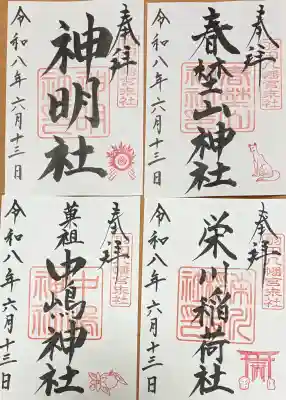 奉拝
神明社
令和八年六月十三日
奉拝
春埜山神社
令和八年六月十三日
奉拝
菓祖
中嶋神社
令和八年六月十三日
奉拝
栄川稲荷社
令和八年六月十三日